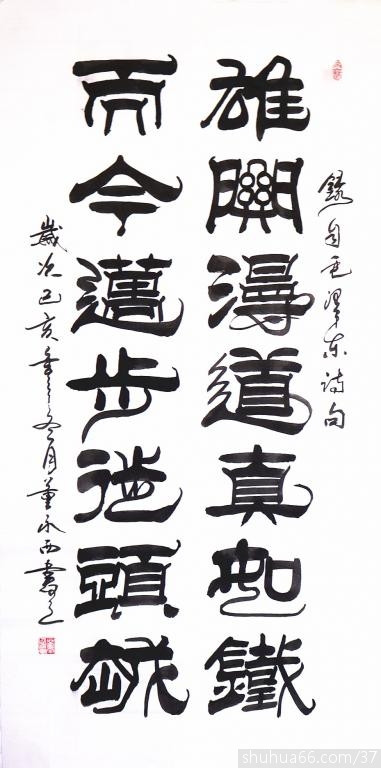 錄自毛泽东诗句
雄關漫道真如鐵
而今邁步從頭越
歲次己亥年之冬月董永西書之
shuhua66.com/37